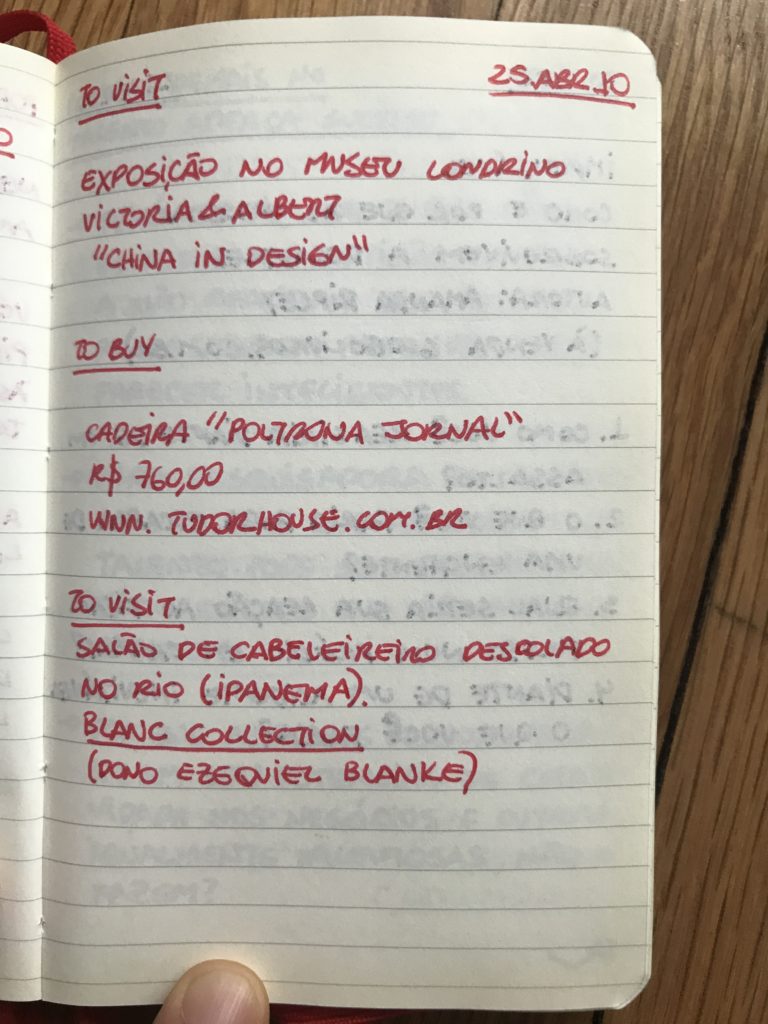 TO VISIT 25.ABR.10
EXPOSIÇÃO NO MUSEU LONDRINO
VICTORIA & ALBERT
"CHINA IN DESIGN"
TO BUY
CADEIRA "POLTRONA JORNAL"
R$ 760,00
WWW. TUDORHOUSE.COM.BR
TO VISIT
SALÃO DE CABELEIREIRO DESCOLADO
NO RIO (IPANEMA).
BLANC COLLECTION
(DONO EZEQUIEL BLANKE)